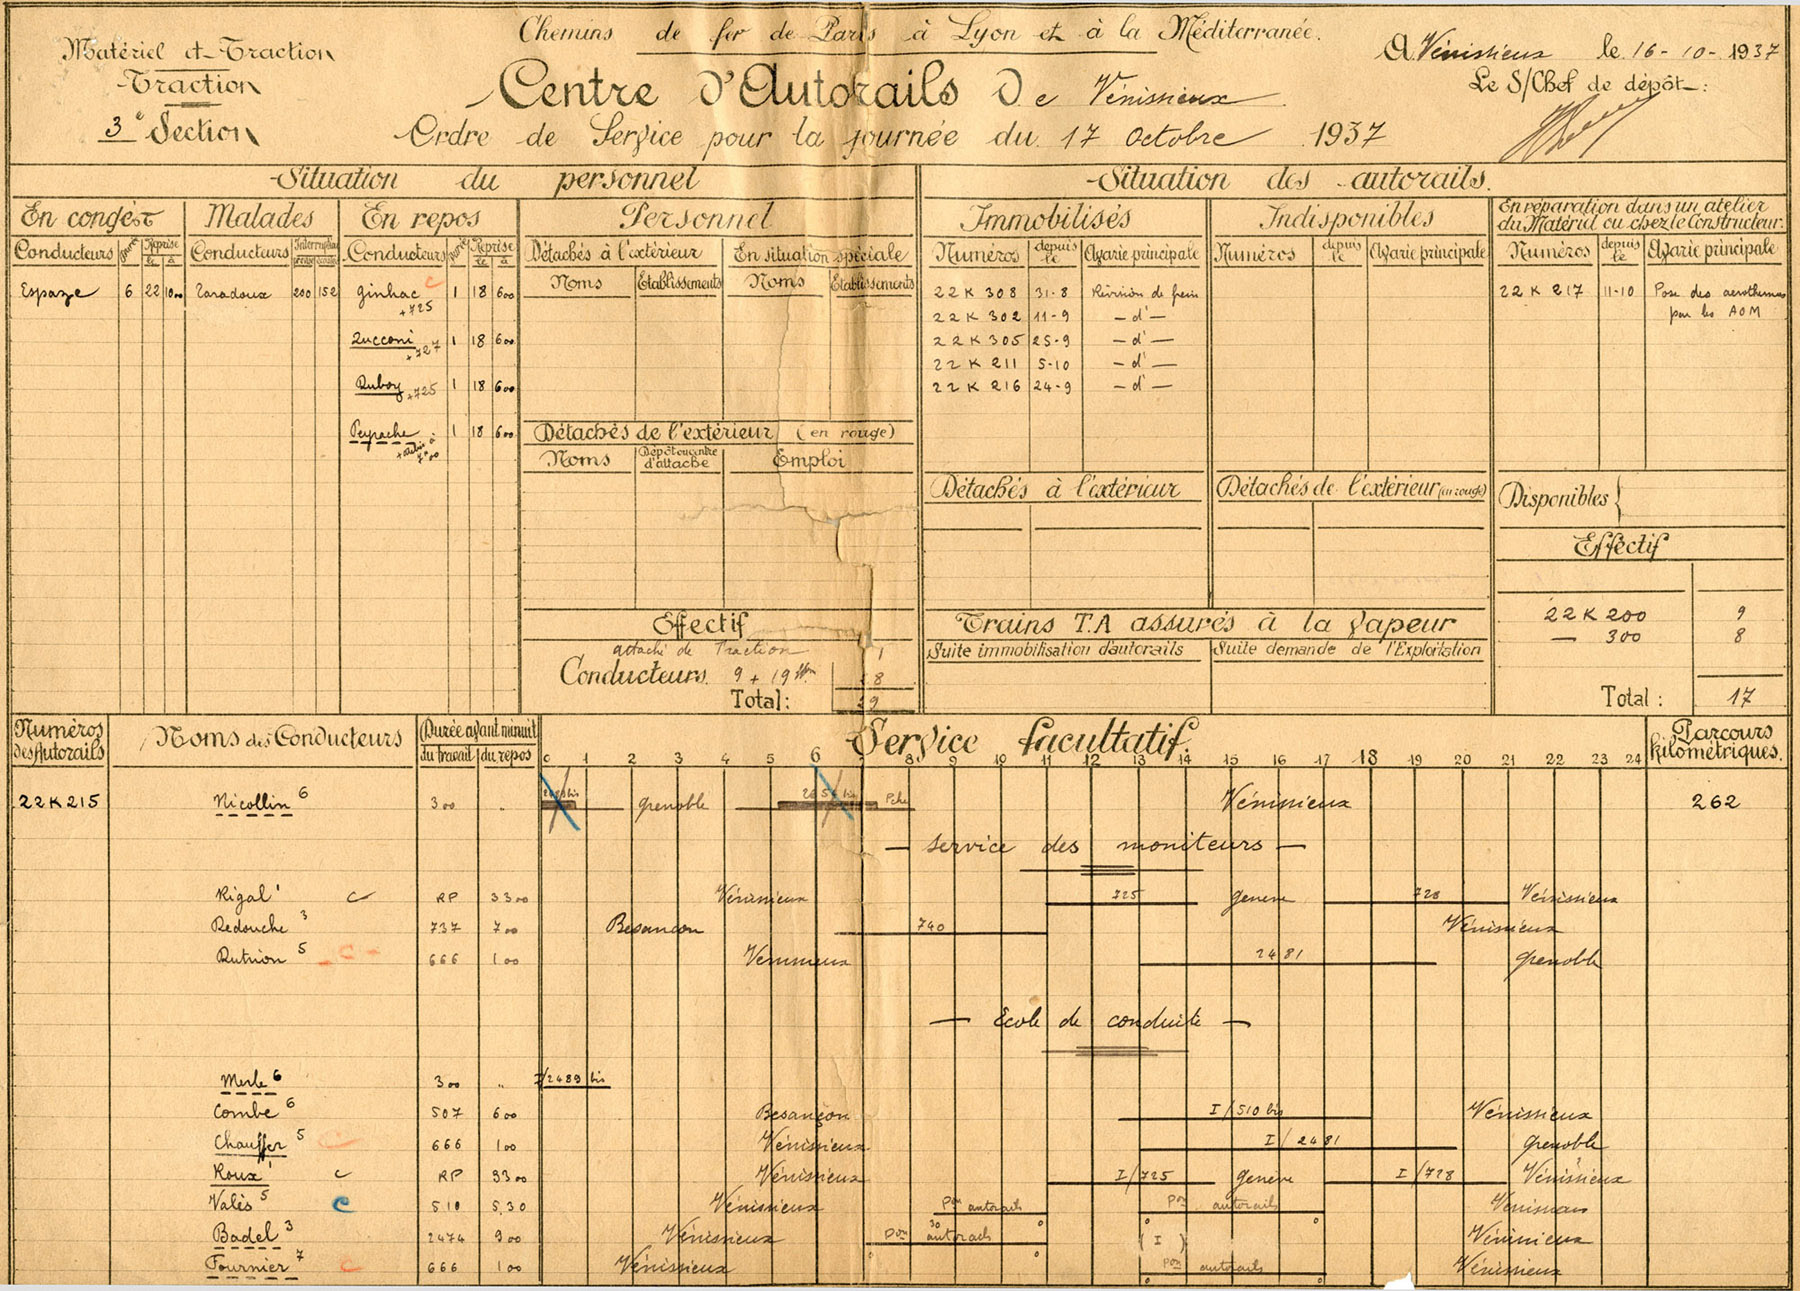 Chemins de fer de Paris à Lyon et à la Méditerranée.
Matériel et Traction
Traction
3e Section
A Vénissieux le 16-10-1937
Le S/Chef de dépôt:
Centre d'Autorails De Vénissieux
Ordre de Service pour la journée du 17 octobre 1937
Situation du personnel
Situation des autorails.
En congés
Malades
En repos
Personnel
Immobilisés
Indisponibles
En réparation dans un atelier
du Matériel ou chez le Constructeur.
Conducteurs Reprise le à
Conducteurs
Conducteurs Reprise le à
Détachés à l'extérieur
En situation spéciale
Noms Etablissements Noms Etablissements
Numéros depuis le Avarie principale
Numéros depuis le Avarie principale
Numéros depuis le Avarie principale
Espaze 6 22 1000
Taradoux 200 152
Ginhac C 1 18 600
+725
Zucconi 1 18 600
+727
Duboy 1 18 600
+725
Peyrache 1 18 600
22 K 308 31-8 Révision de frein
22 K 302 11-9 — d° —
22 K 305 25-9 — d° —
22 K 211 5-10 — d° —
22 K 216 24-9 — d° —
22 K 217 11-10 Pose des aerothermes
par les AOM
Détachés de l'extérieur (en rouge)
Noms Dépôt ou centre d'attache Emploi
Détachés à l'extérieur
Détachés de l'extérieur (en rouge)
Disponibles {
Effectif
22 K 200 9
— 300 8
Total: 17
Effectif
attaché de Traction 1
Conducteurs. 9 + 19 28
Total: 29
Trains T.A assurés à la vapeur
Suite immobilisation d'autorails
Suite demande de l'Exploitation
Numéros des Autorails
Noms des Conducteurs
Durée avant minuit
du travail du repos
Service facultatif.
Parcours kilométriques.
0 1 2 3 4 5 6 7 8 9 10 11 12 13 14 15 16 17 18 19 20 21 22 23 24
22 K 215 Nicollin 6 300 " grenoble Vénissieux 262
— Service des moniteurs —
Rigal 1 c RP 3300 Vénissieux 725 geneve 728 Vénissieux
Redouche 3 737 700 Besancon 740 Vénissieux
Dutrion 5 - C - 666 100 Vénissieux 2481 grenoble
— Ecole de conduite —
Merle 6 300 " I/2489 bis
Combe 6 507 600 Besançon I/510 bis Vénissieux
Chauffer 5 666 100 Vénissieux I/2481 grenoble
Roux 1 c RP 3300 Vénissieux I/725 geneve I/728 Vénissieux
Valès 5 c 510 5,30 Vénissieux Pon autorails Pon autorails Vénissieux
Badel 3 2474 900 Vénissieux Pon autorails ( I ) Vénissieux
Fournier 7 c 666 100 Vénissieux Pon autorails Vénissieux